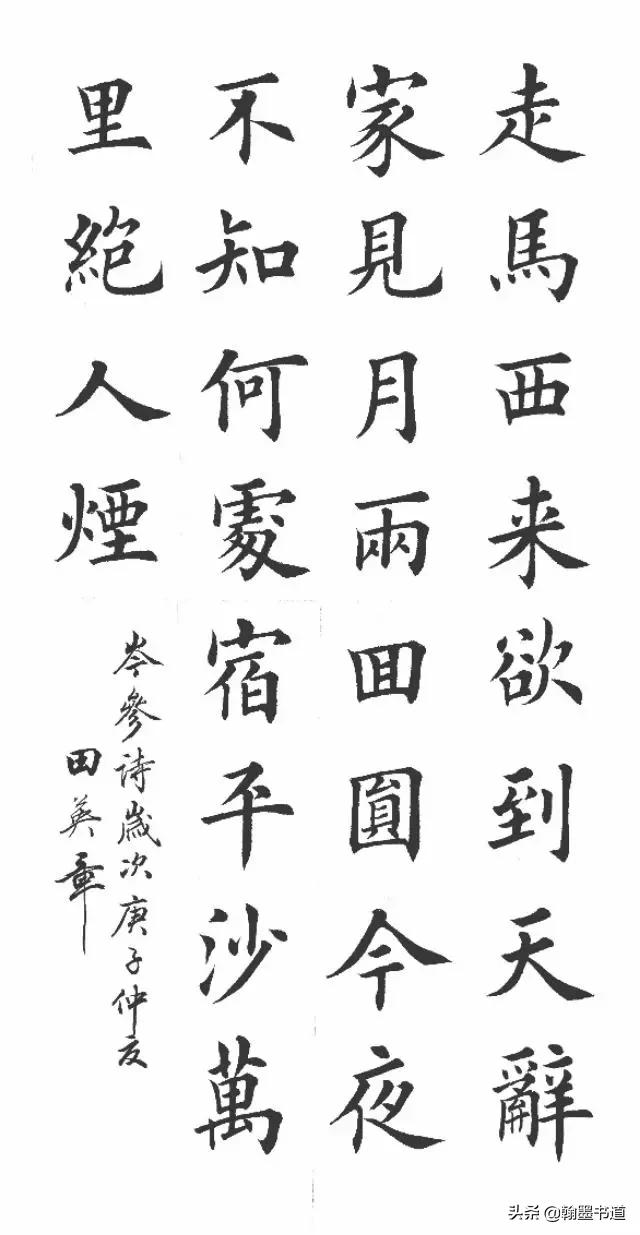 走馬西来欲到天辭
家見月兩回圓今夜
不知何處宿平沙萬
里絶人煙
岑參詩歲次庚子仲夏
田英章
头条 @翰墨书道